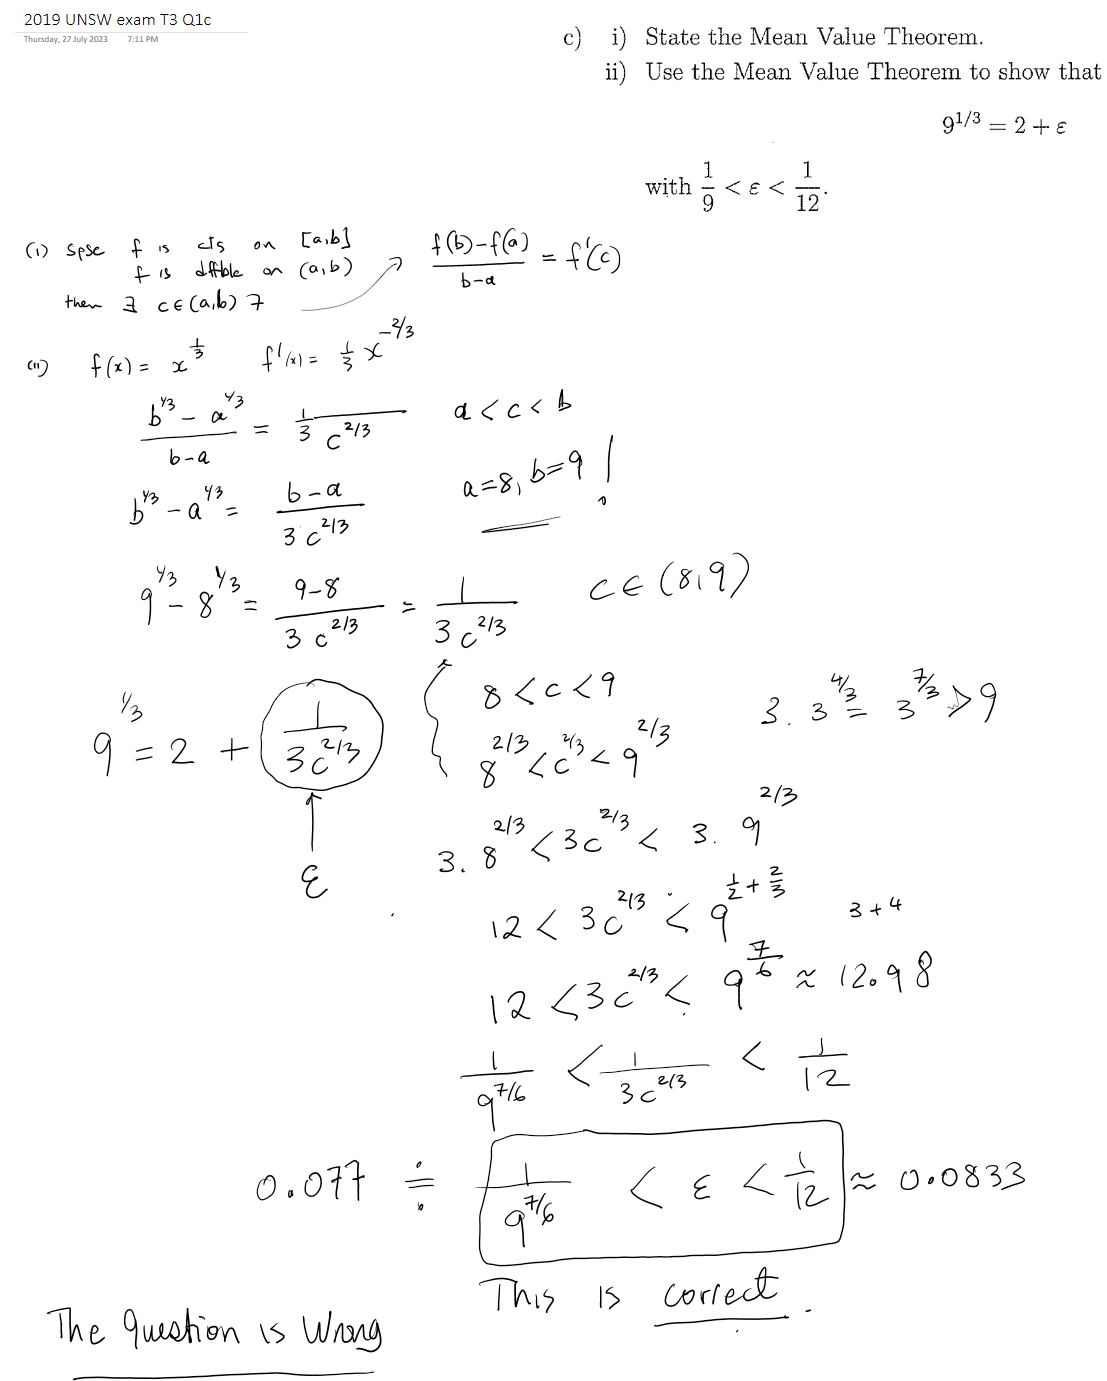 2019 UNSW exam T3 Q1c
Thursday, 27 July 2023 7:11 PM
c) i) State the Mean Value Theorem.
ii) Use the Mean Value Theorem to show that
9^{1/3} = 2 + ε
with 1/9 < ε < 1/12.
(i) Spse f is cts on [a,b]
f is dffble on (a,b)
then ∃ c∈(a,b) ∋
(f(b)-f(a))/(b-a) = f'(c)
(ii) f(x) = x^{1/3} f'(x) = 1/3 x^{-2/3}
(b^{1/3} - a^{1/3})/(b-a) = 1/(3 c^{2/3}) a < c < b
b^{1/3} - a^{1/3} = (b-a)/(3 c^{2/3}) a=8, b=9 !
9^{1/3} - 8^{1/3} = (9-8)/(3 c^{2/3}) = 1/(3 c^{2/3}) c ∈ (8,9)
9^{1/3} = 2 + 1/(3c^{2/3})
ε
8 < c < 9
8^{2/3} < c^{2/3} < 9^{2/3}
3. 3^{4/3} = 3^{7/3} > 9
3. 8^{2/3} < 3c^{2/3} < 3. 9^{2/3}
12 < 3c^{2/3} < 9^{1/2 + 2/3} 3+4
12 < 3c^{2/3} < 9^{7/6} ≈ 12.98
1/9^{7/6} < 1/(3c^{2/3}) < 1/12
0.077 ≑ 1/9^{7/6} < ε < 1/12 ≈ 0.0833
This is correct.
The Question is Wrong